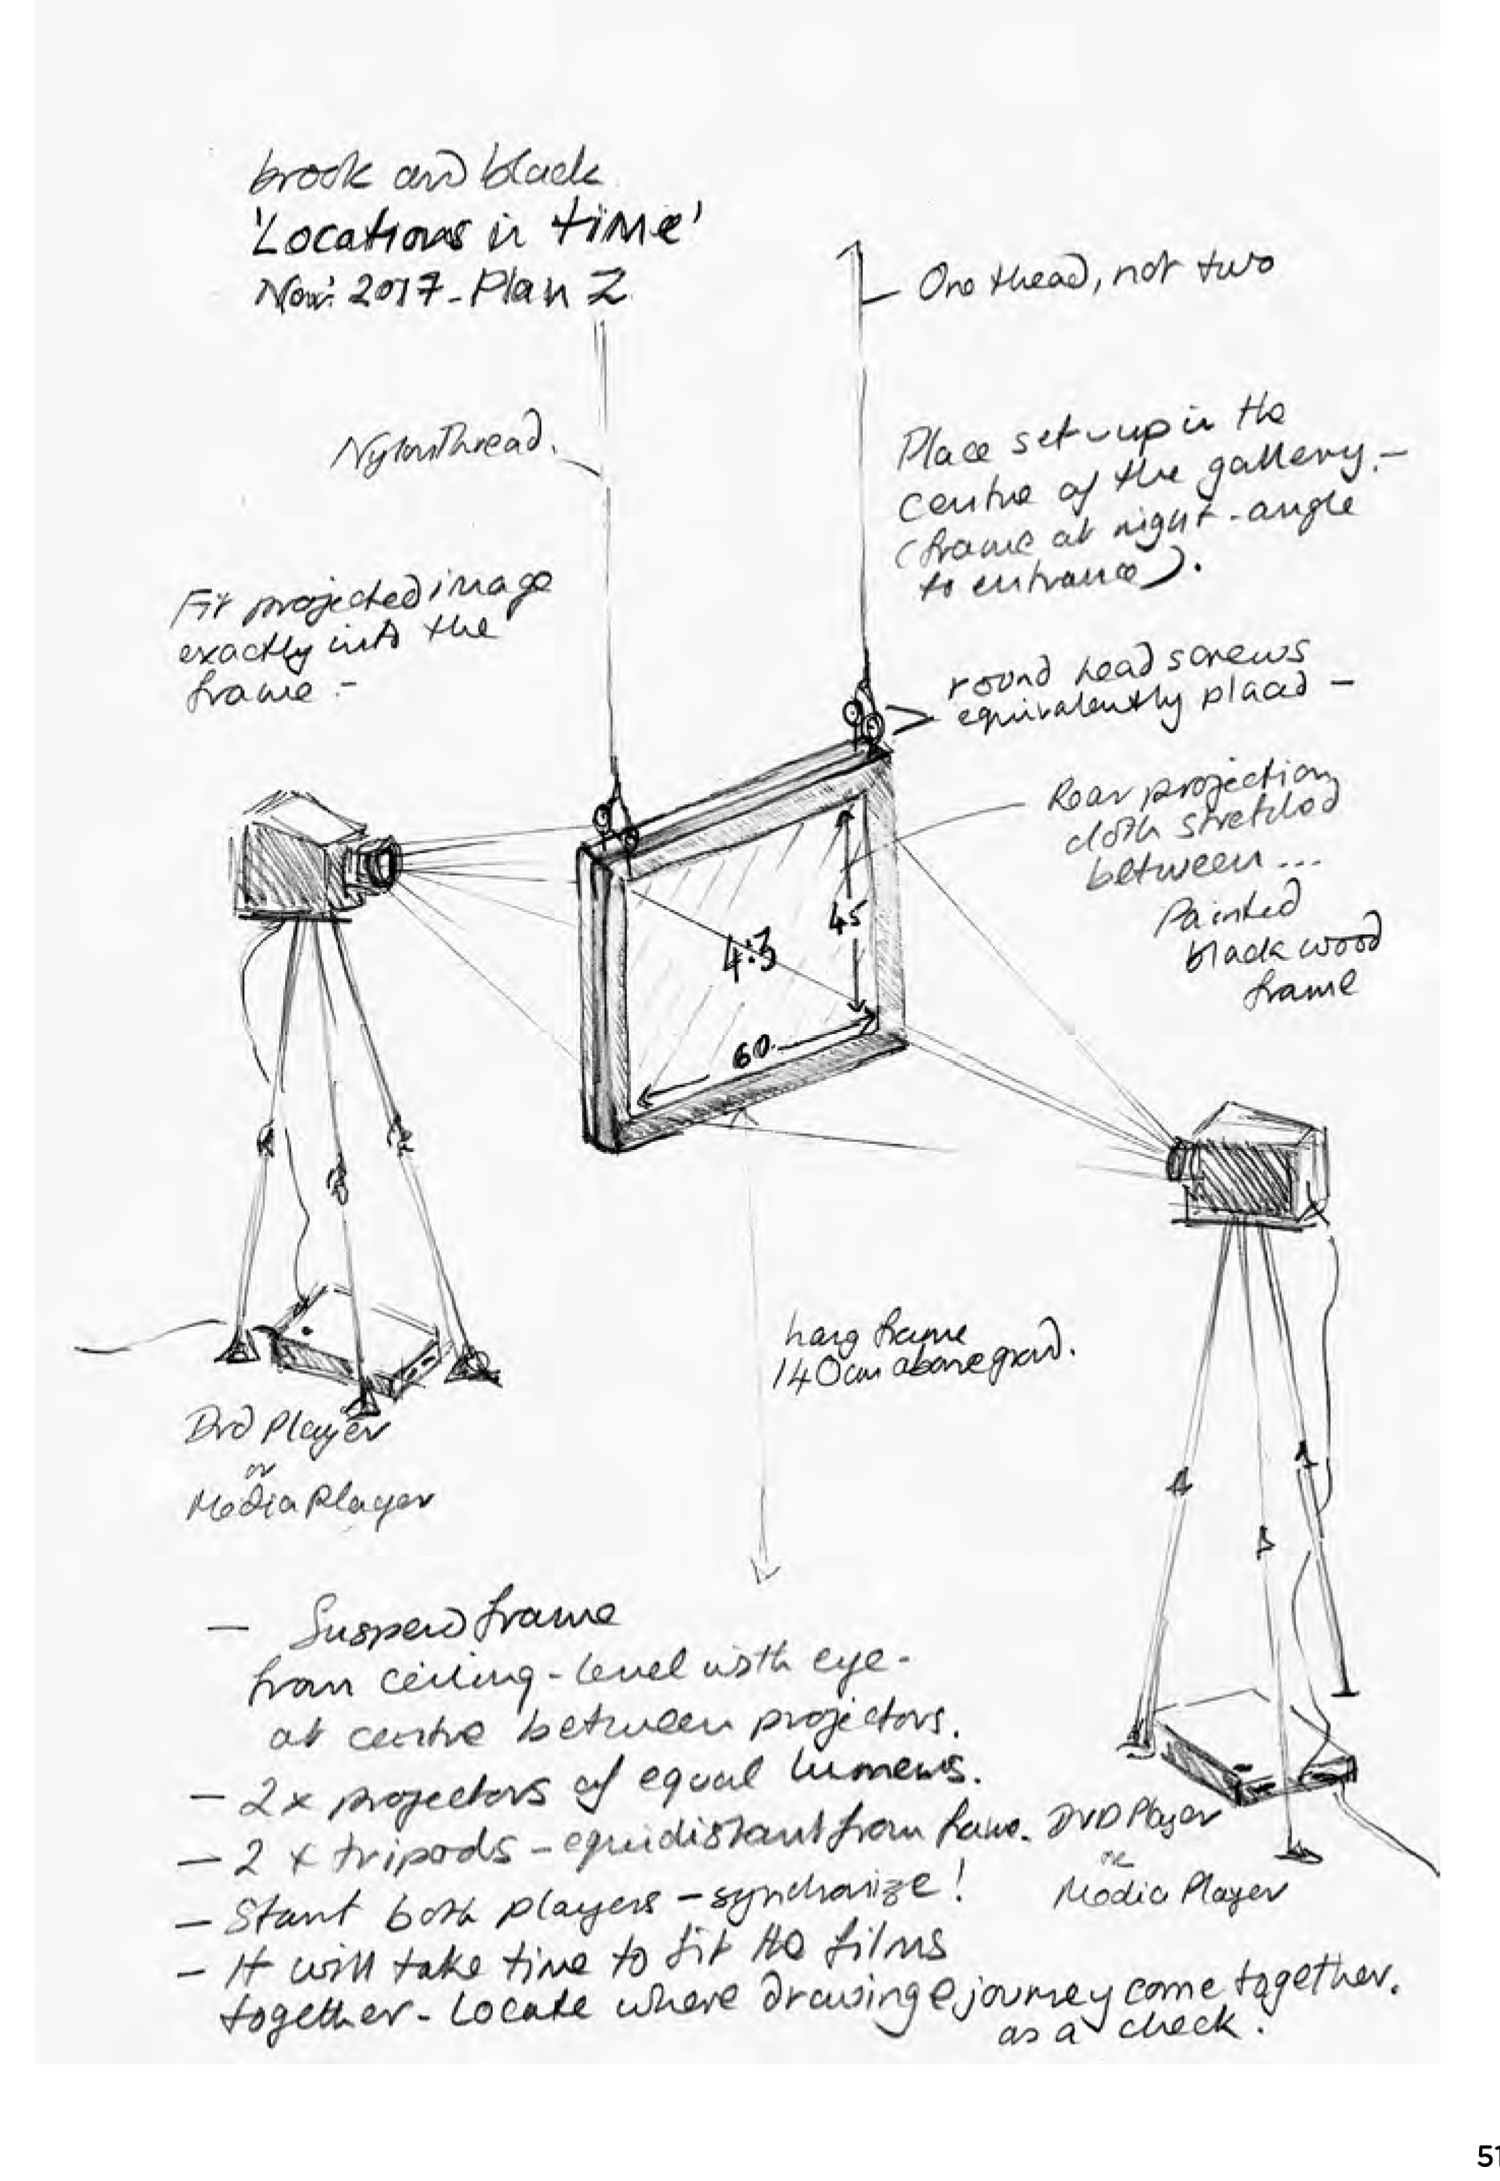 brook and black
'Locations in time'
Nov: 2017 - Plan 2
One thead, not two
Nylon Thread.
Place set-up in the
centre of the gallery. -
(frame at right-angle
to entrance).
Fit projected image
exactly into the
frame -
round head screws
equivalently placed -
Rear projection
cloth stretched
between ...
Painted
black wood
frame
4:3
45
60
hang frame
140cm above ground.
Dvd Player
or
Media Player
- Suspend frame
from ceiling - level with eye -
at centre between projectors.
- 2x projectors of equal lumens.
- 2 x tripods - equidistant from frame.
DVD Player
or
Media Player
- Start both players - synchronize!
- It will take time to fit the films
together - Locate where drawing & journey come together.
as a check.
51